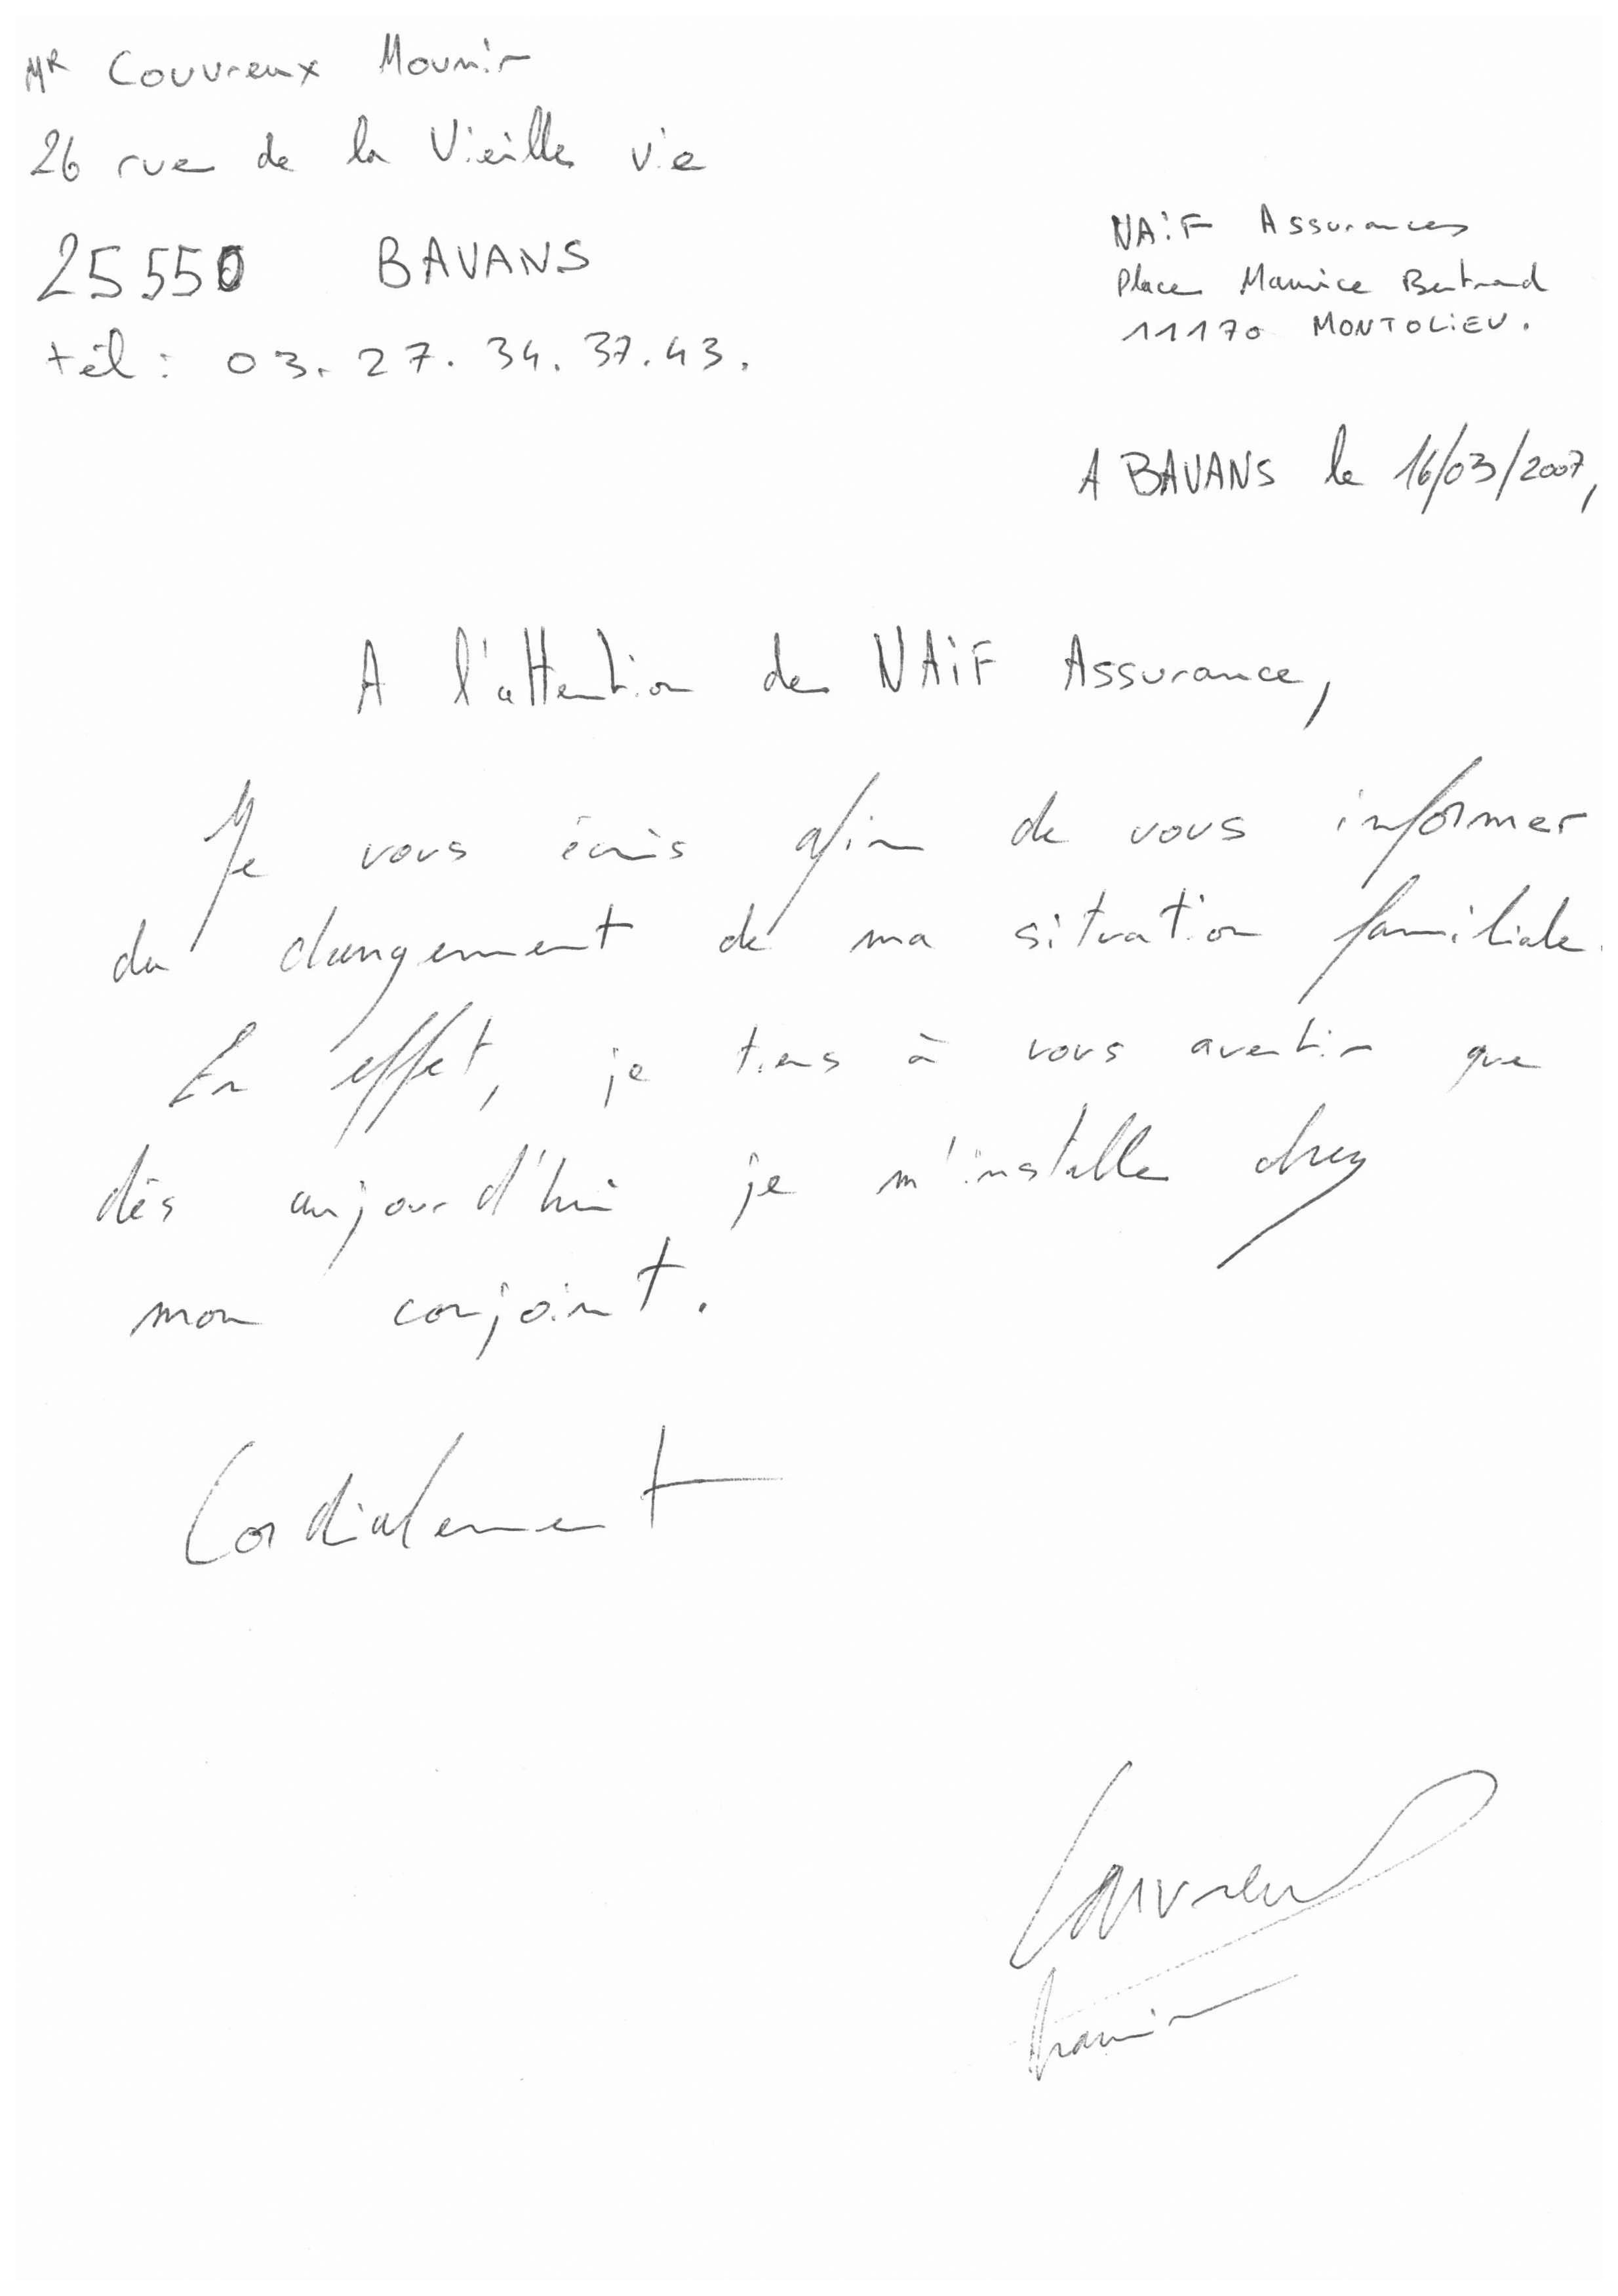 MR Couvreux Mounir
26 rue de la Vieille vie
25550 BAVANS
tél : 03.27.34.37.43.
NAiF Assurances
Place Maurice Bertrand
11170 MONTOLiEU.
A BAVANS le 16/03/2007,
A l'attention de NAiF Assurance,
Je vous écris afin de vous informer
du changement de ma situation familiale.
En effet, je tiens à vous avertir que
dès aujourd'hui je m'installe chez
mon conjoint.
Cordialement